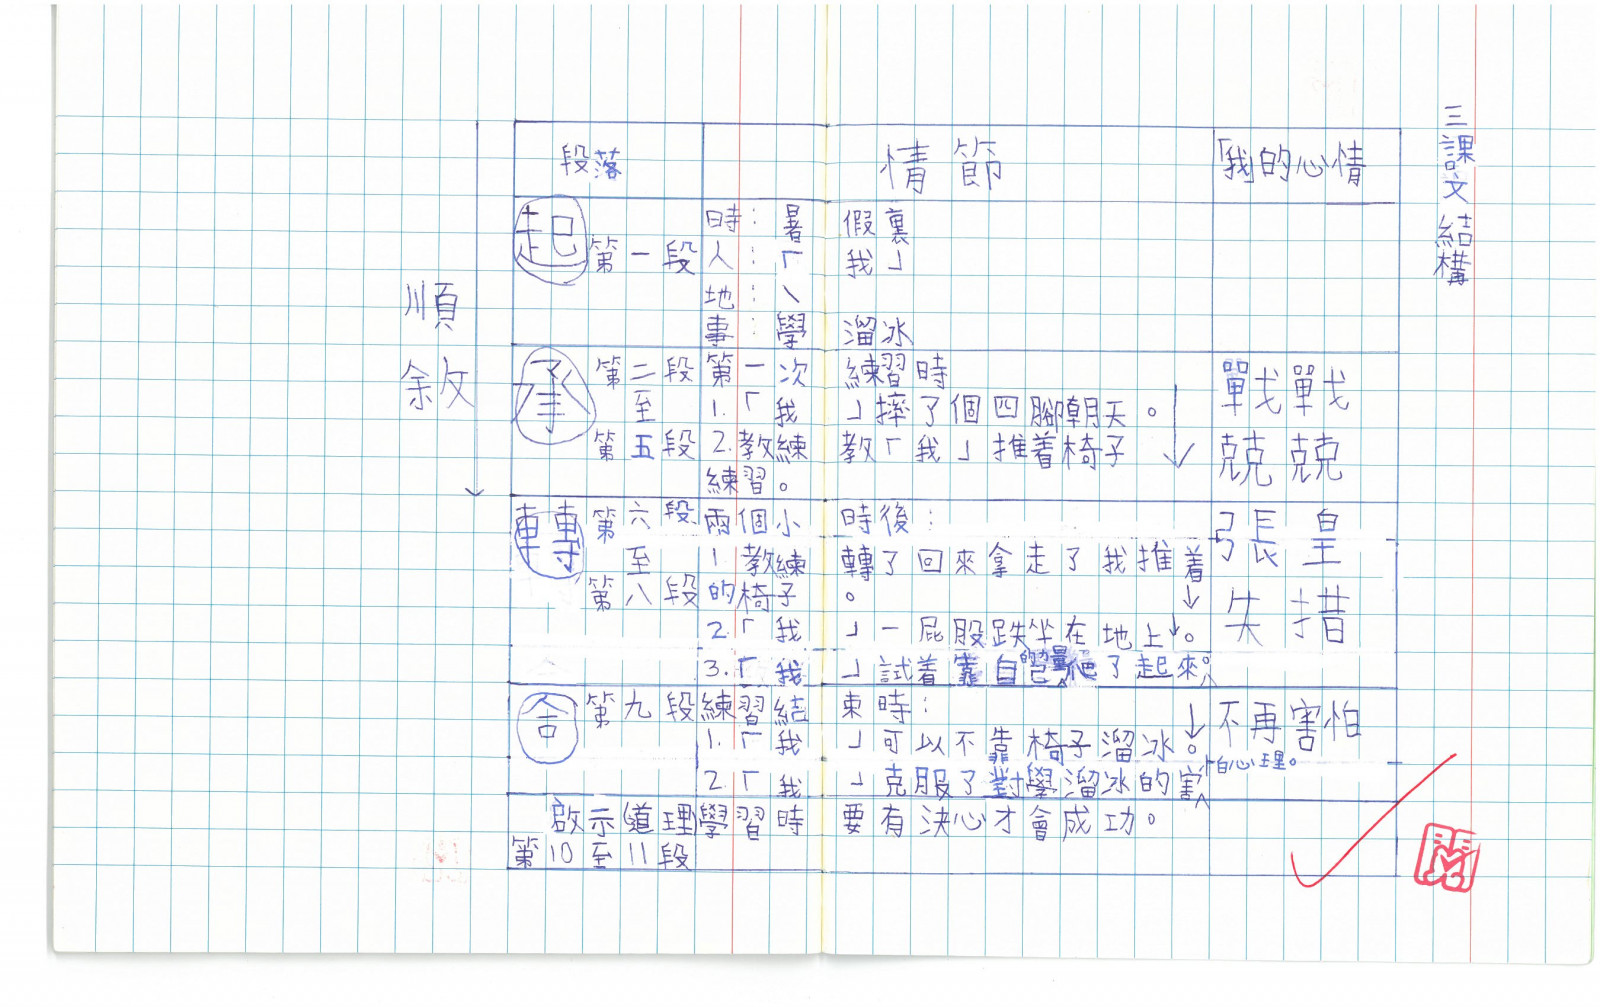 三課文結構
段落 情節 「我」的心情
順敘
起 第一段
時：暑假裏
人：「我」
地：\
事：學溜冰
承 第二段至第五段
第一次練習時
1.「我」摔了個四腳朝天。
2.教練教「我」推着椅子
練習。
戰戰
兢兢
轉 第六段至第八段
兩個小時後：
1 教練轉了回來拿走了我推着
的椅子。
2.「我」一屁股跌坐在地上。
3.「我」試着靠自己的力量爬了起來。
張皇
失措
合 第九段
練習結束時：
1.「我」可以不靠椅子溜冰。
2.「我」克服了對學溜冰的害怕心理。
不再害怕
啟示(道理)
第10至11段
學習時要有決心才會成功。
閱